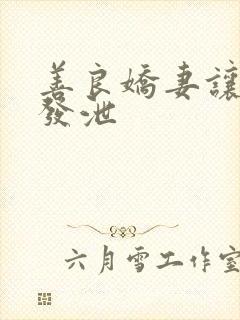 善良嬌妻讓
發泄
六月雪工作室